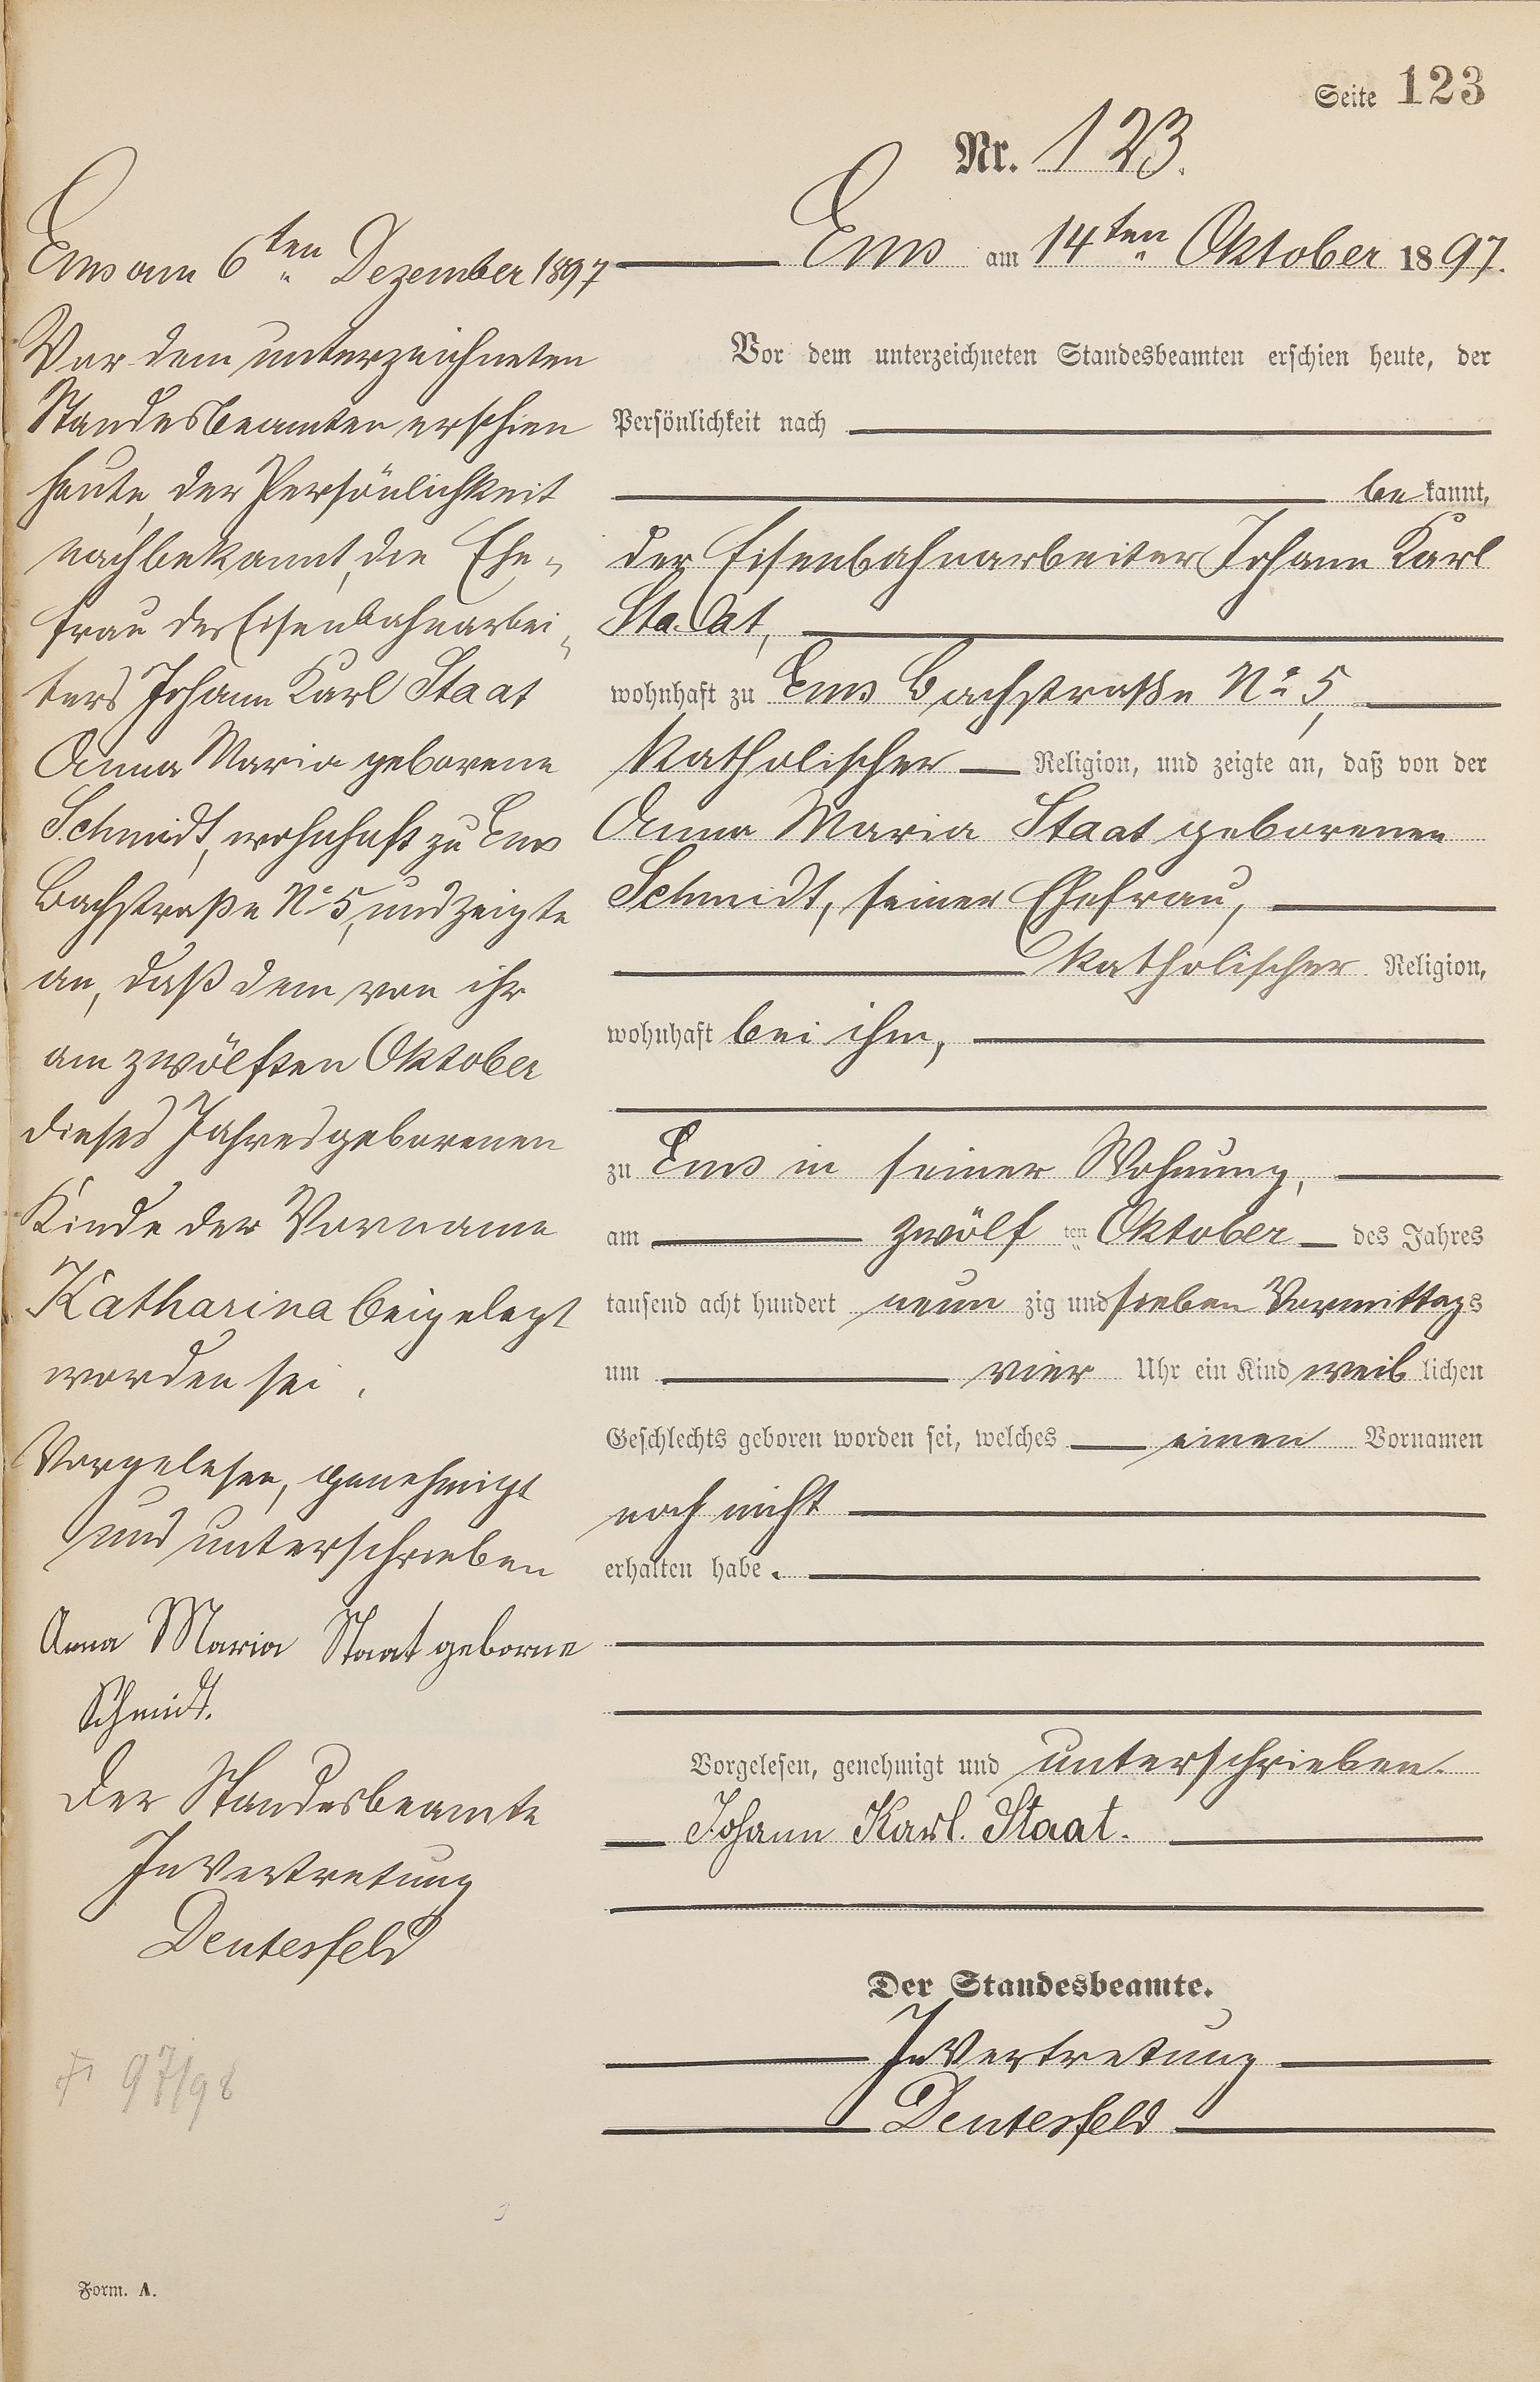 Seite 123
Nr. 123.
Ems am 14ten Oktober 1897.
Vor dem unterzeichneten Standesbeamten erschien heute, der
Persönlichkeit nach
bekannt,
der Eisenbahnarbeiter Johann Karl
Staat,
wohnhaft zu Ems Bachstraße No 5,
katholischer Religion, und zeigte an, daß von der
Anna Maria Staat geborenen
Schmidt, seiner Ehefrau,
katholischer Religion,
wohnhaft bei ihm,
zu Ems in seiner Wohnung,
am zwölften Oktober des Jahres
tausend acht hundert neunzig und sieben Vormittags
um vier Uhr ein Kind weiblichen
Geschlechts geboren worden sei, welches einen Vornamen
noch nicht
erhalten habe.
Vorgelesen, genehmigt und unterschrieben.
Johann Karl. Staat.
Der Standesbeamte.
In Vertretung
Deutesfeld
Ems am 6ten Dezember 1897
Vor dem unterzeichneten
Standesbeamten erschien
heute, der Persönlichkeit
nach bekannt, die Ehe-
frau des Eisenbahnarbei-
ters Johann Karl Staat
Anna Maria geborene
Schmidt, wohnhaft zu Ems
Bachstraße No 5, und zeigte
an, daß dem von ihr
am zwölften Oktober
dieses Jahres geborenen
Kinde der Vorname
Katharina beigelegt
worden sei.
Vorgelesen, genehmigt
und unterschrieben
Anna Maria Staat geborne
Schmidt.
Der Standesbeamte
In Vertretung
Deutesfeld
97/98
Form. A.